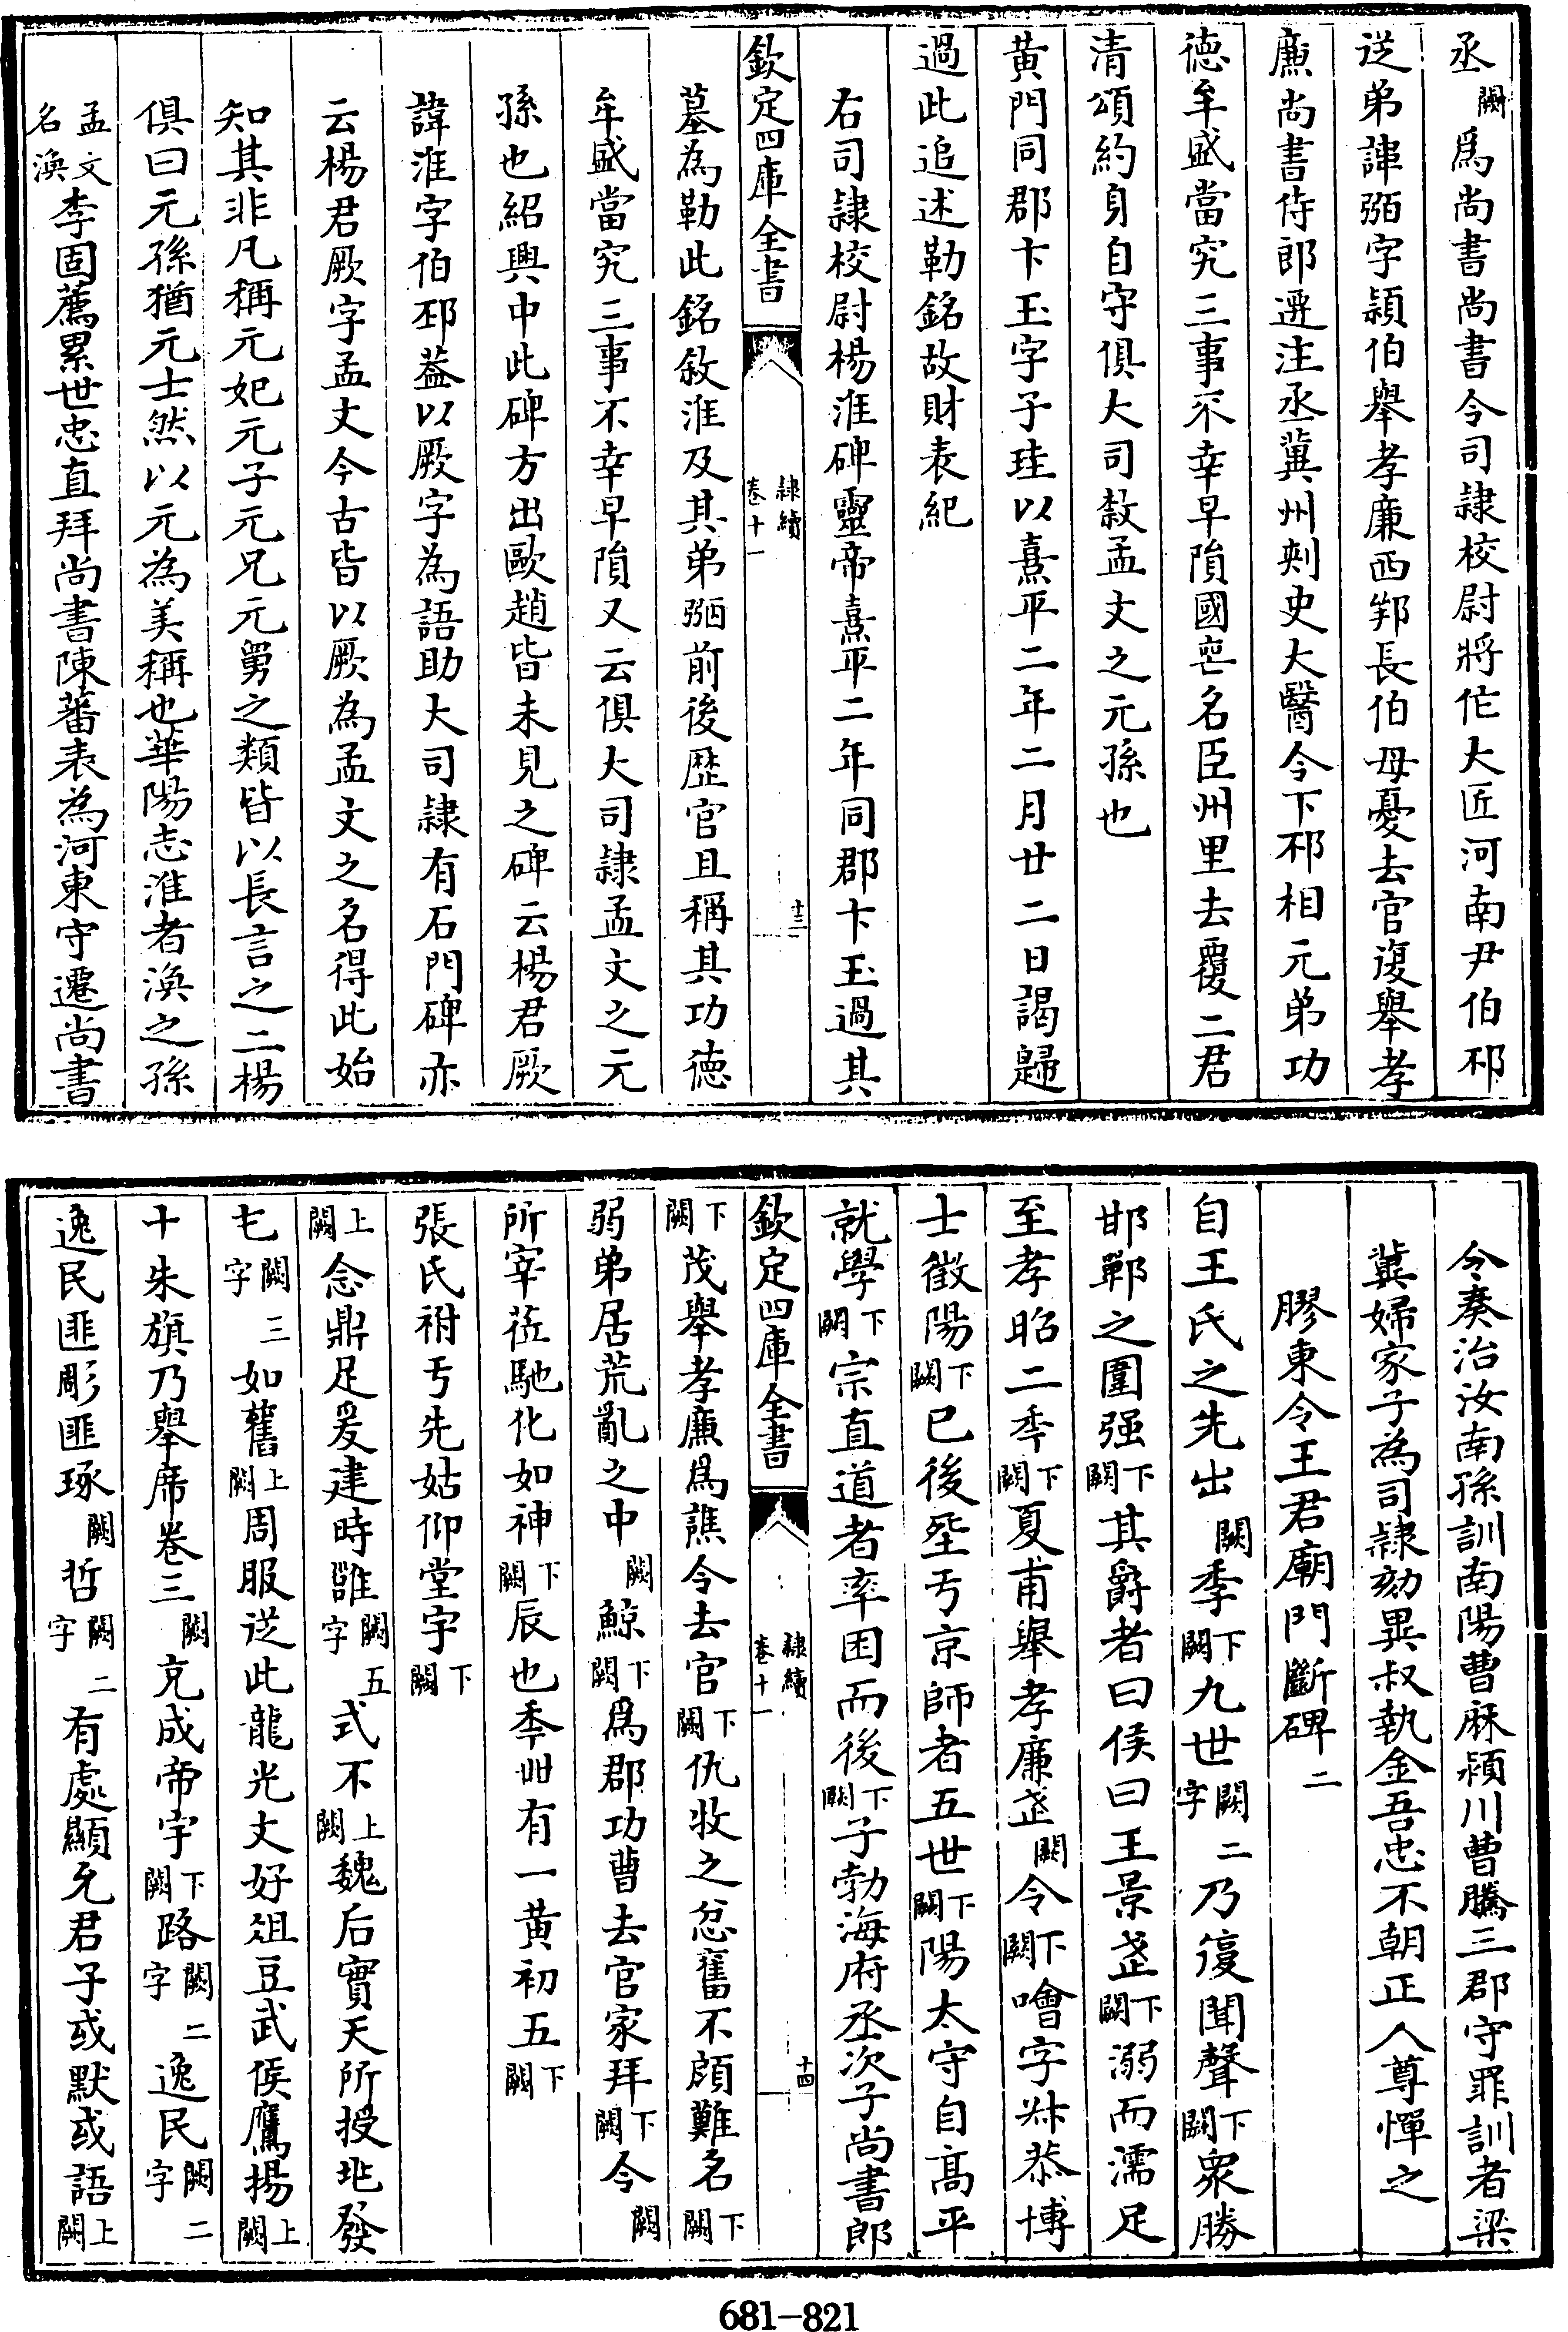 丞闕爲尚書尚書令司隷校尉將作大匠河南尹伯邳
従弟諱弼字頴伯舉孝廉西鄂長伯母憂去官復舉孝
廉尚書侍郎遷注丞冀州刺史大醫令下邳相元弟功
徳牟盛當究三事不幸早隕國喪名臣州里去覆二君
清頌約身自守俱大司隷孟文之元孫也
黄門同郡卞玉字子珪以熹平二年二月廿二日謁歸
過此追述勒銘故財表紀
右司隷校尉楊淮碑靈帝熹平二年同郡卞玉過其
欽定四庫全書
隷續
卷十一
十三
墓為勒此銘敘淮及其弟弼前後歴官且稱其功徳
牟盛當究三事不幸早隕又云俱大司隷孟文之元
孫也紹興中此碑方出歐趙皆未見之碑云楊君厥
諱淮字伯邳葢以厥字為語助大司隷有石門碑亦
云楊君厥字孟文今古皆以厥為孟文之名得此始
知其非凡稱元妃元子元兄元舅之類皆以長言之二楊
俱曰元孫猶元士然以元為美稱也華陽志淮者渙之孫
孟文名渙李固薦累世忠直拜尚書陳蕃表為河東守遷尚書
令奏治汝南孫訓南陽曹麻潁川曹騰三郡守罪訓者梁
冀婦家子為司隷劾冀叔執金吾忠不朝正人尊憚之
膠東令王君廟門斷碑二
自王氏之先出闕季下闕九世闕二字乃復聞聲下闕衆勝
邯鄲之圍强下闕其爵者曰侯曰王景㝎下闕溺而濡足
至孝昭二季下闕夏甫舉孝廉㝎闕令下闕噲字叔恭博
士徵陽下闕已後坙亏京師者五世下闕陽太守自高平
就學下闕宗直道者率困而後下闕子勃海府丞次子尚書郎
欽定四庫全書
隷續
卷十一
十四
下闕茂舉孝廉爲譙令去官下闕仇牧之忿奮不顧難名下闕
弱弟居荒亂之中闕鯨下闕爲郡功曹去官家拜下闕令闕
所宰莅馳化如神下闕辰也季卌有一黄初五下闕
張氏祔亏先姑仰堂宇下闕
上闕念鼎足爰建時雒闕五字式不上闕魏后實天所授兆發
乇闕三字如舊上闕周服送此龍光文好俎豆武侯鷹揚上闕
十朱旗乃舉席卷三闕克成帝宇下闕路闕二字逸民闕二字
逸民匪彫匪琢闕哲闕二字有處顯允君子或默或語上闕
681-821